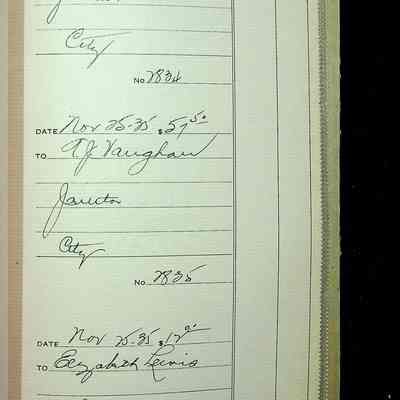 City
No 7834
DATE Nov 25-35 $57 50
TO A.J. Vaughan
Janitor
City
No 7835
DATE Nov 25-35 $12
TO Elizabeth Lewis